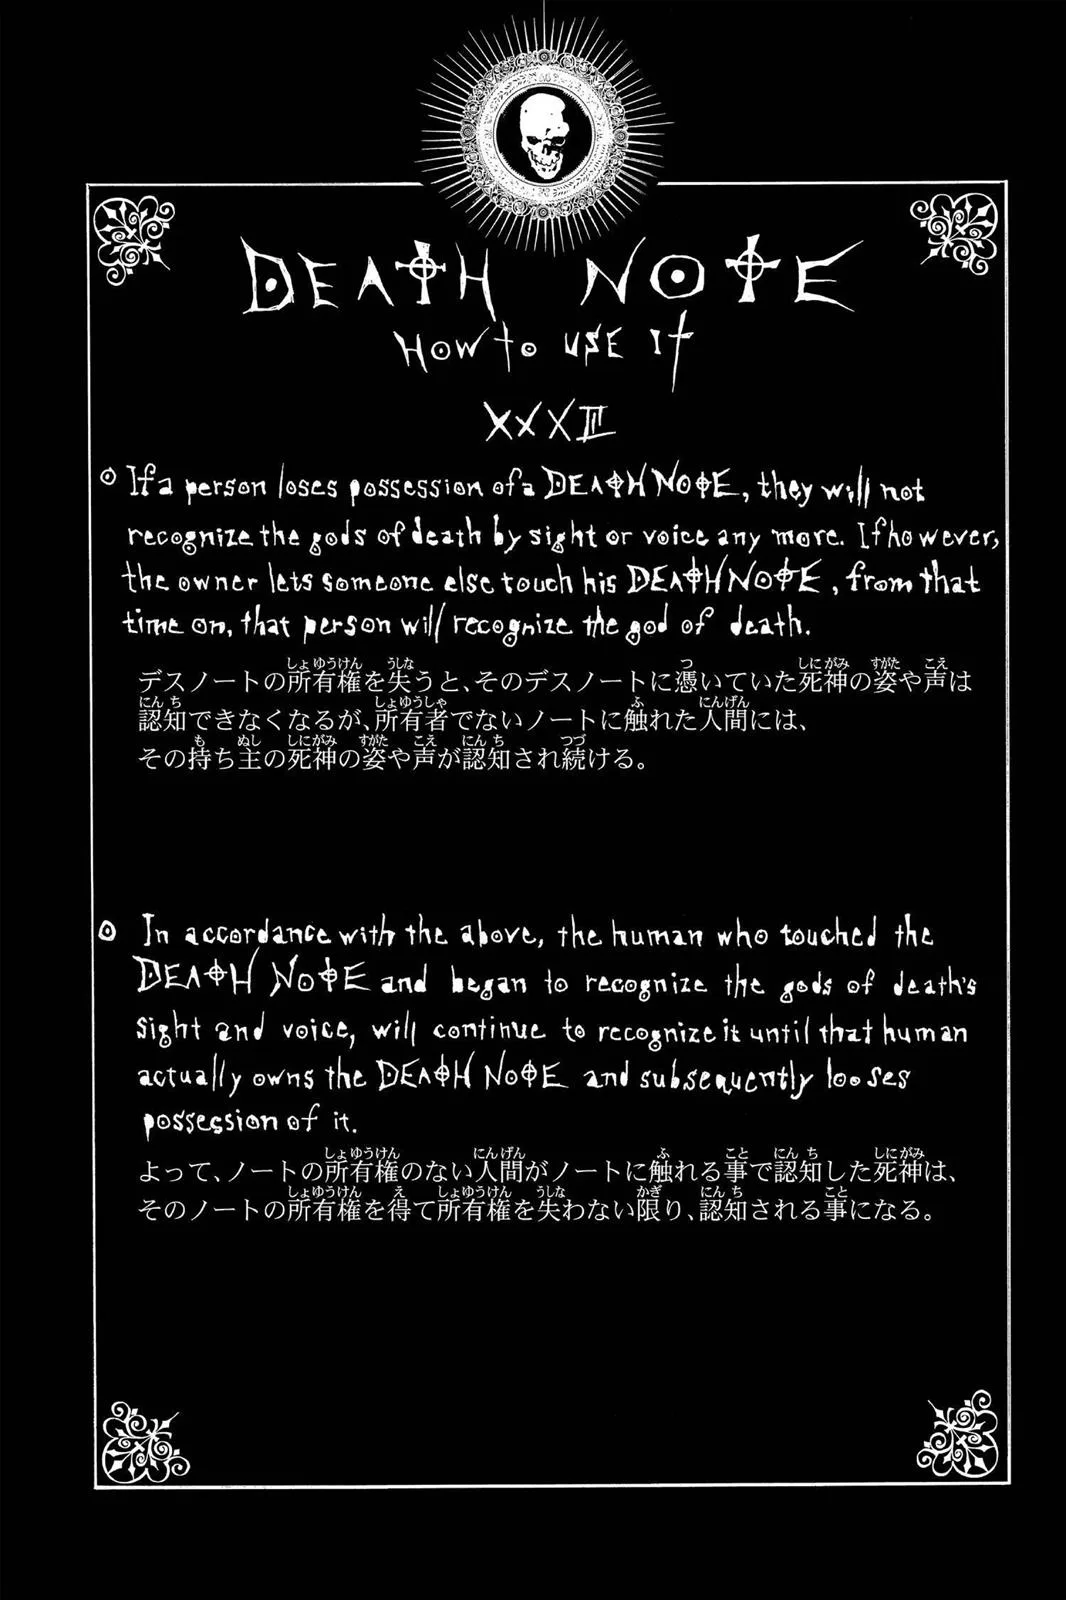 DEATH NOTE
HOW to USE It
XXXIII
If a person loses possession of a DEATH NOTE, they will not
recognize the gods of death by sight or voice any more. If however,
the owner lets someone else touch his DEATH NOTE, from that
time on, that person will recognize the god of death.
デスノートの所有権を失うと、そのデスノートに憑いていた死神の姿や声は
認知できなくなるが、所有者でないノートに触れた人間には、
その持ち主の死神の姿や声が認知され続ける。
In accordance with the above, the human who touched the
DEATH NOTE and began to recognize the gods of death's
sight and voice, will continue to recognize it until that human
actually owns the DEATH NOTE and subsequently looses
possession of it.
よって、ノートの所有権のない人間がノートに触れる事で認知した死神は、
そのノートの所有権を得て所有権を失わない限り、認知される事になる。